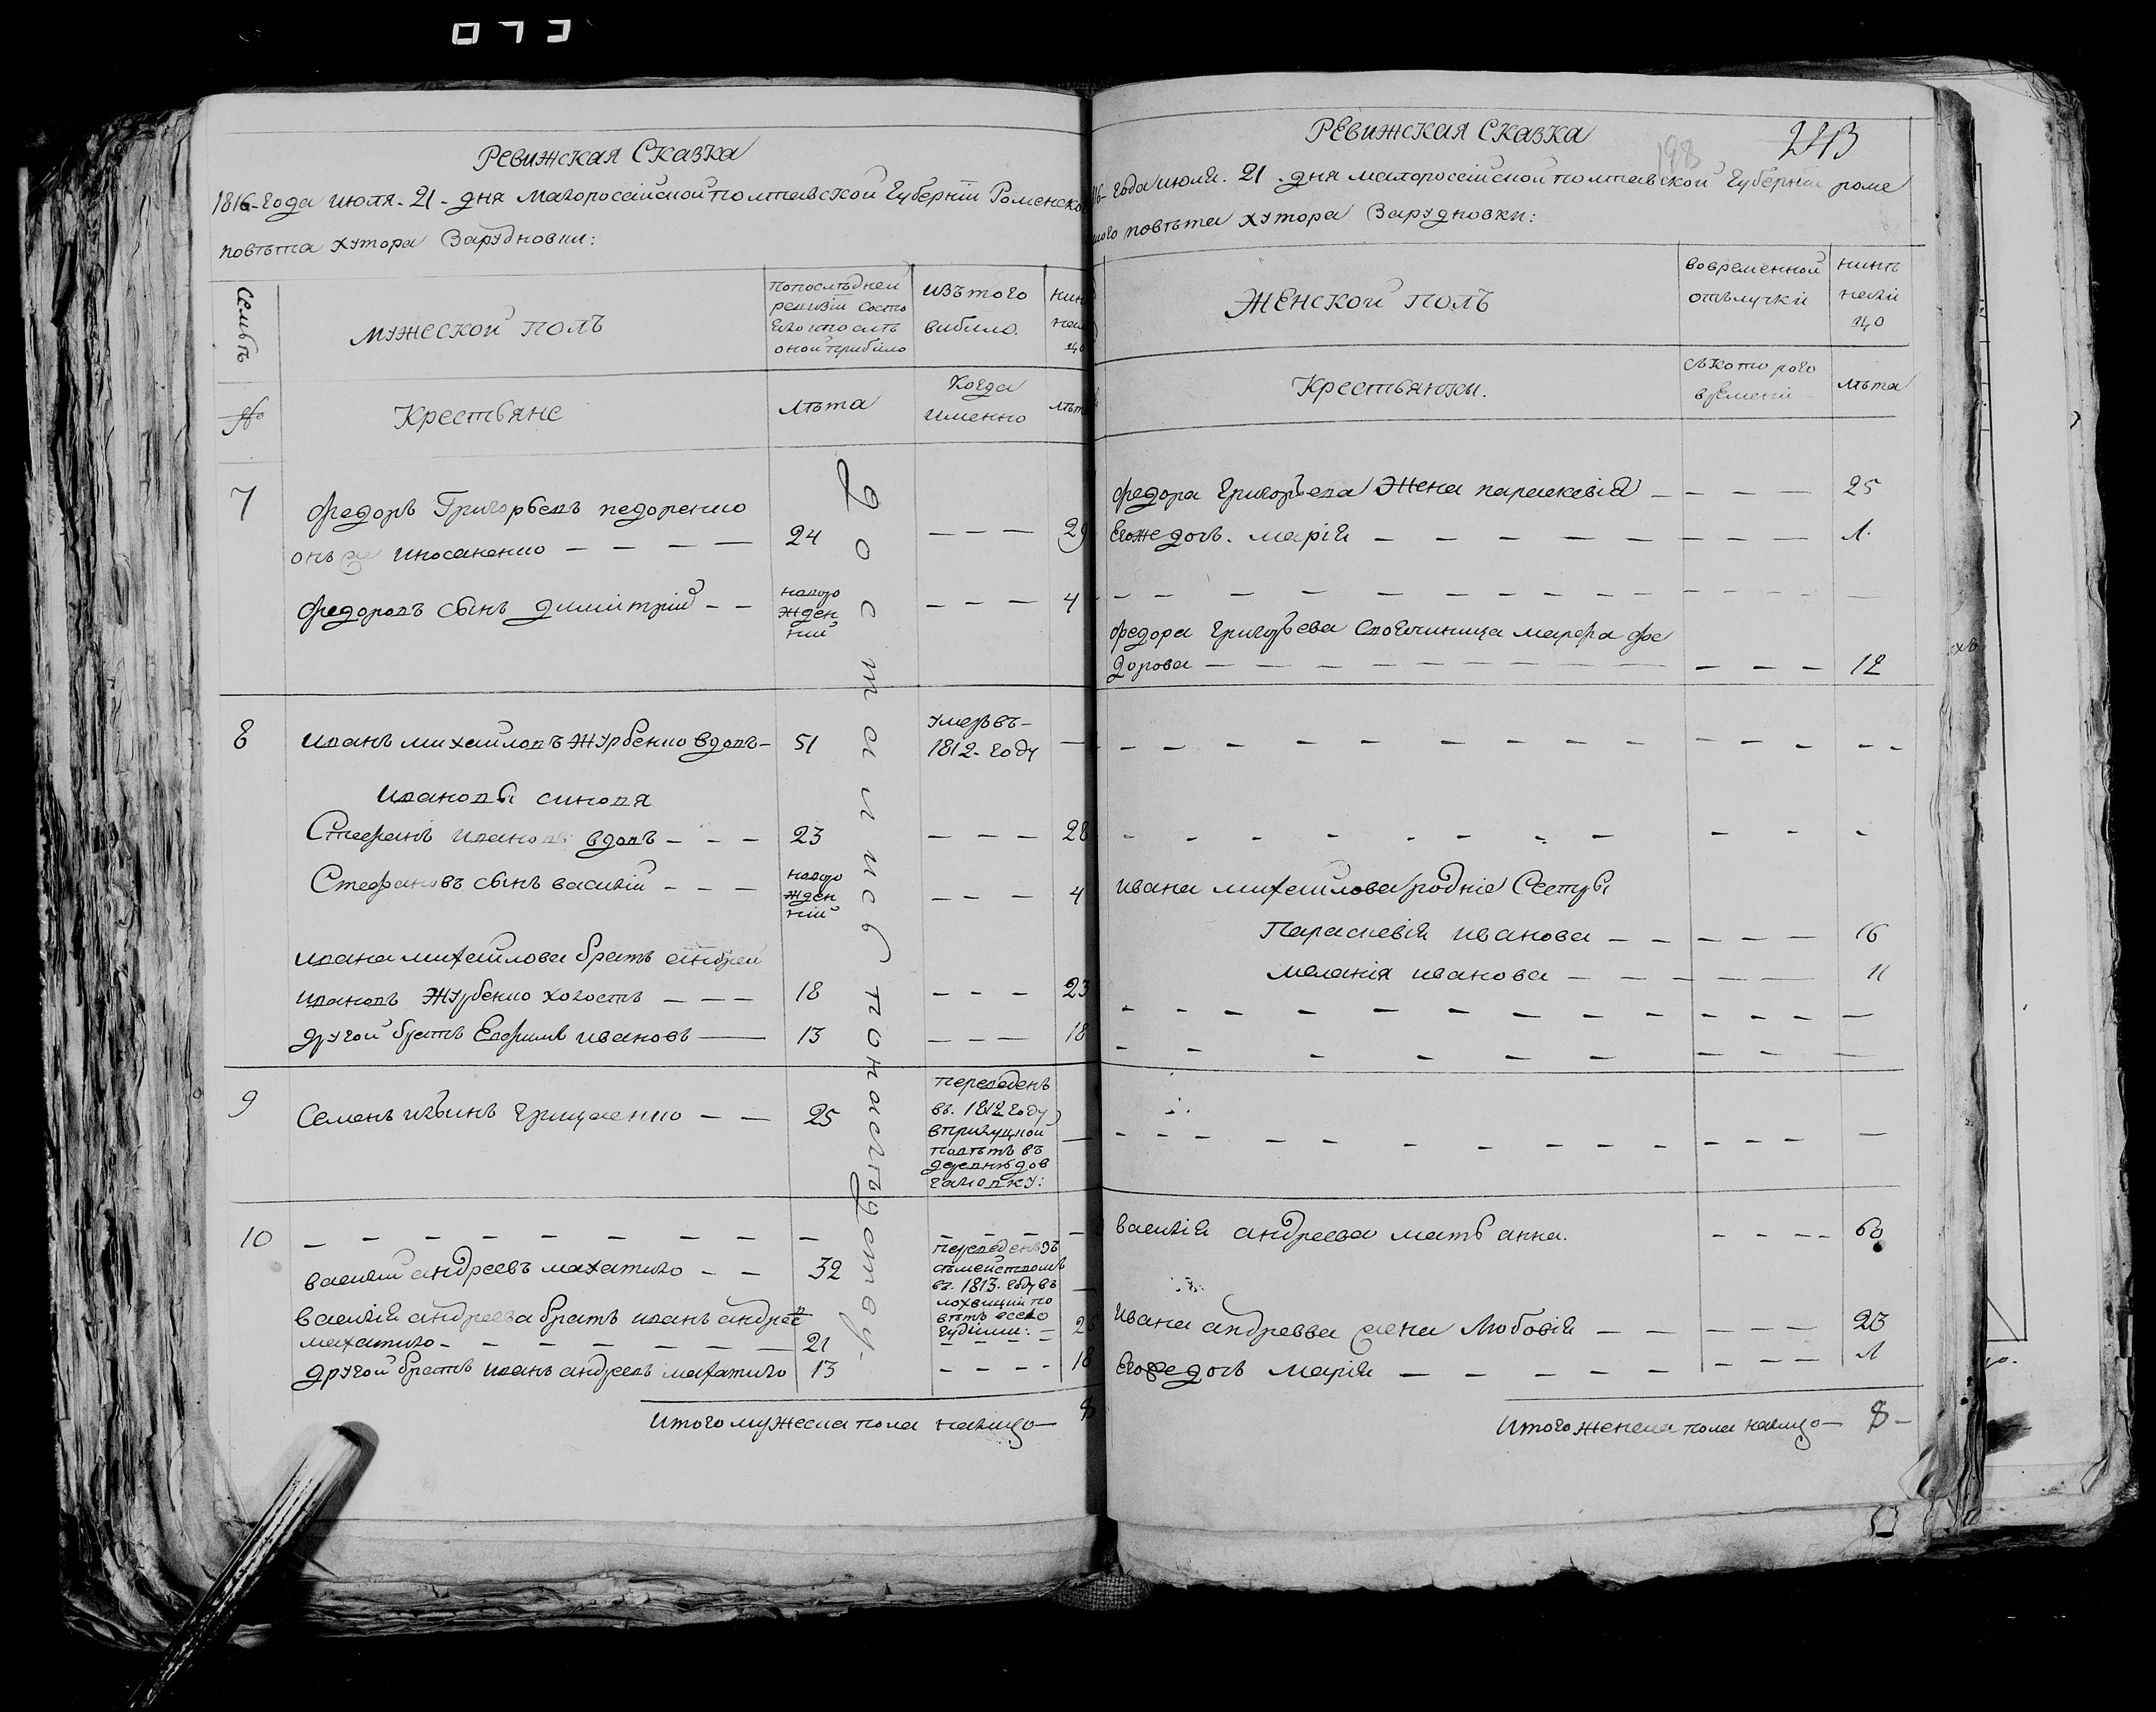 073
Ревижская Сказка
1816-года июля-21-дня малороссійской полтавской Губерніи Роменско
повѣта хутора Зарудновки:
Семьѣ
мужеской полъ
попослѣдней
ревизіи состо
яло ипослѣ
оной прибило
изътого
вибило.
нин
нал
цо
№
Крестьяне
лѣта
Когда
именно
лѣт
7
федоръ Григорьевъ педоренко
онъ же иносаненко — — — — 24 — — — 29
федоровъ сынъ димитрій — —
новоро
жден
ній
— — — 4
8
иванъ михайловъ журбенко вдовъ — 51
умерь въ —
1812-году
—
ивановы синовя
Стефанъ ивановъ вдовъ — — — 23 — — — 28
Стефановъ сынъ василій — — —
новоро
жден
ній
— — — 4
ивана михайлова братъ андрей
ивановъ журбенко холостъ — — — 18 — — — 23
другой братъ Евфимъ ивановъ — 13 — — — 18
9
Семенъ ильинъ грицаенко — — 25
переведенъ
въ. 1812 году
вприлуцкой
повѣтъ въ
деревню дов
галовку:
—
10
— — — — — — — — — — — — —
василій андреевъ махатило — — 32
переведенъ зъ
сѣмействомъ
въ. 1813. году въ
лохвицкій по
вѣтъ всело
—
василія андреева братъ иванъ андрее
махатило — — — — — — — 21 — — — 26
другой братъ иванъ андреевъ махатило 13 — — — — 18
Достанись понаслѣдству.
Итого мужеска пола налицо — 8
Ревижская Сказка
198
243
16- года июля. 21. дня малороссійской полтавской Губерніи роме
ского повѣта хутора Зарудновки:
женской полъ
вовременной
отълучкі
нинѣ
налі
цо
Крестьянки.
съкоторого
времени
лѣта
федора григорьева жена параскевія — — — — 25
Егоже дочь. марія — — — — — — — — — 1.
— — — — — — — — — — — — —
федора григорьева своячиница марфа фе
дорова — — — — — — — — — — — 12
— — — — — — — — — — — — —
— — — — — — — — — — —
ивана михайлова родніе Сестры
Параскевія иванова — — — — — 16
меланія иванова — — — — — 11
— — — — — — — — — — — — —
— — — — — — — — — —
— — — — — — — — — — — — —
василія андреева мать анна. — — — — 60
Ивана андреева жена Любовія — — — — — 23
Егоже дочь марія — — — — — — — — 1
Итого женска пола налицо — 8 —